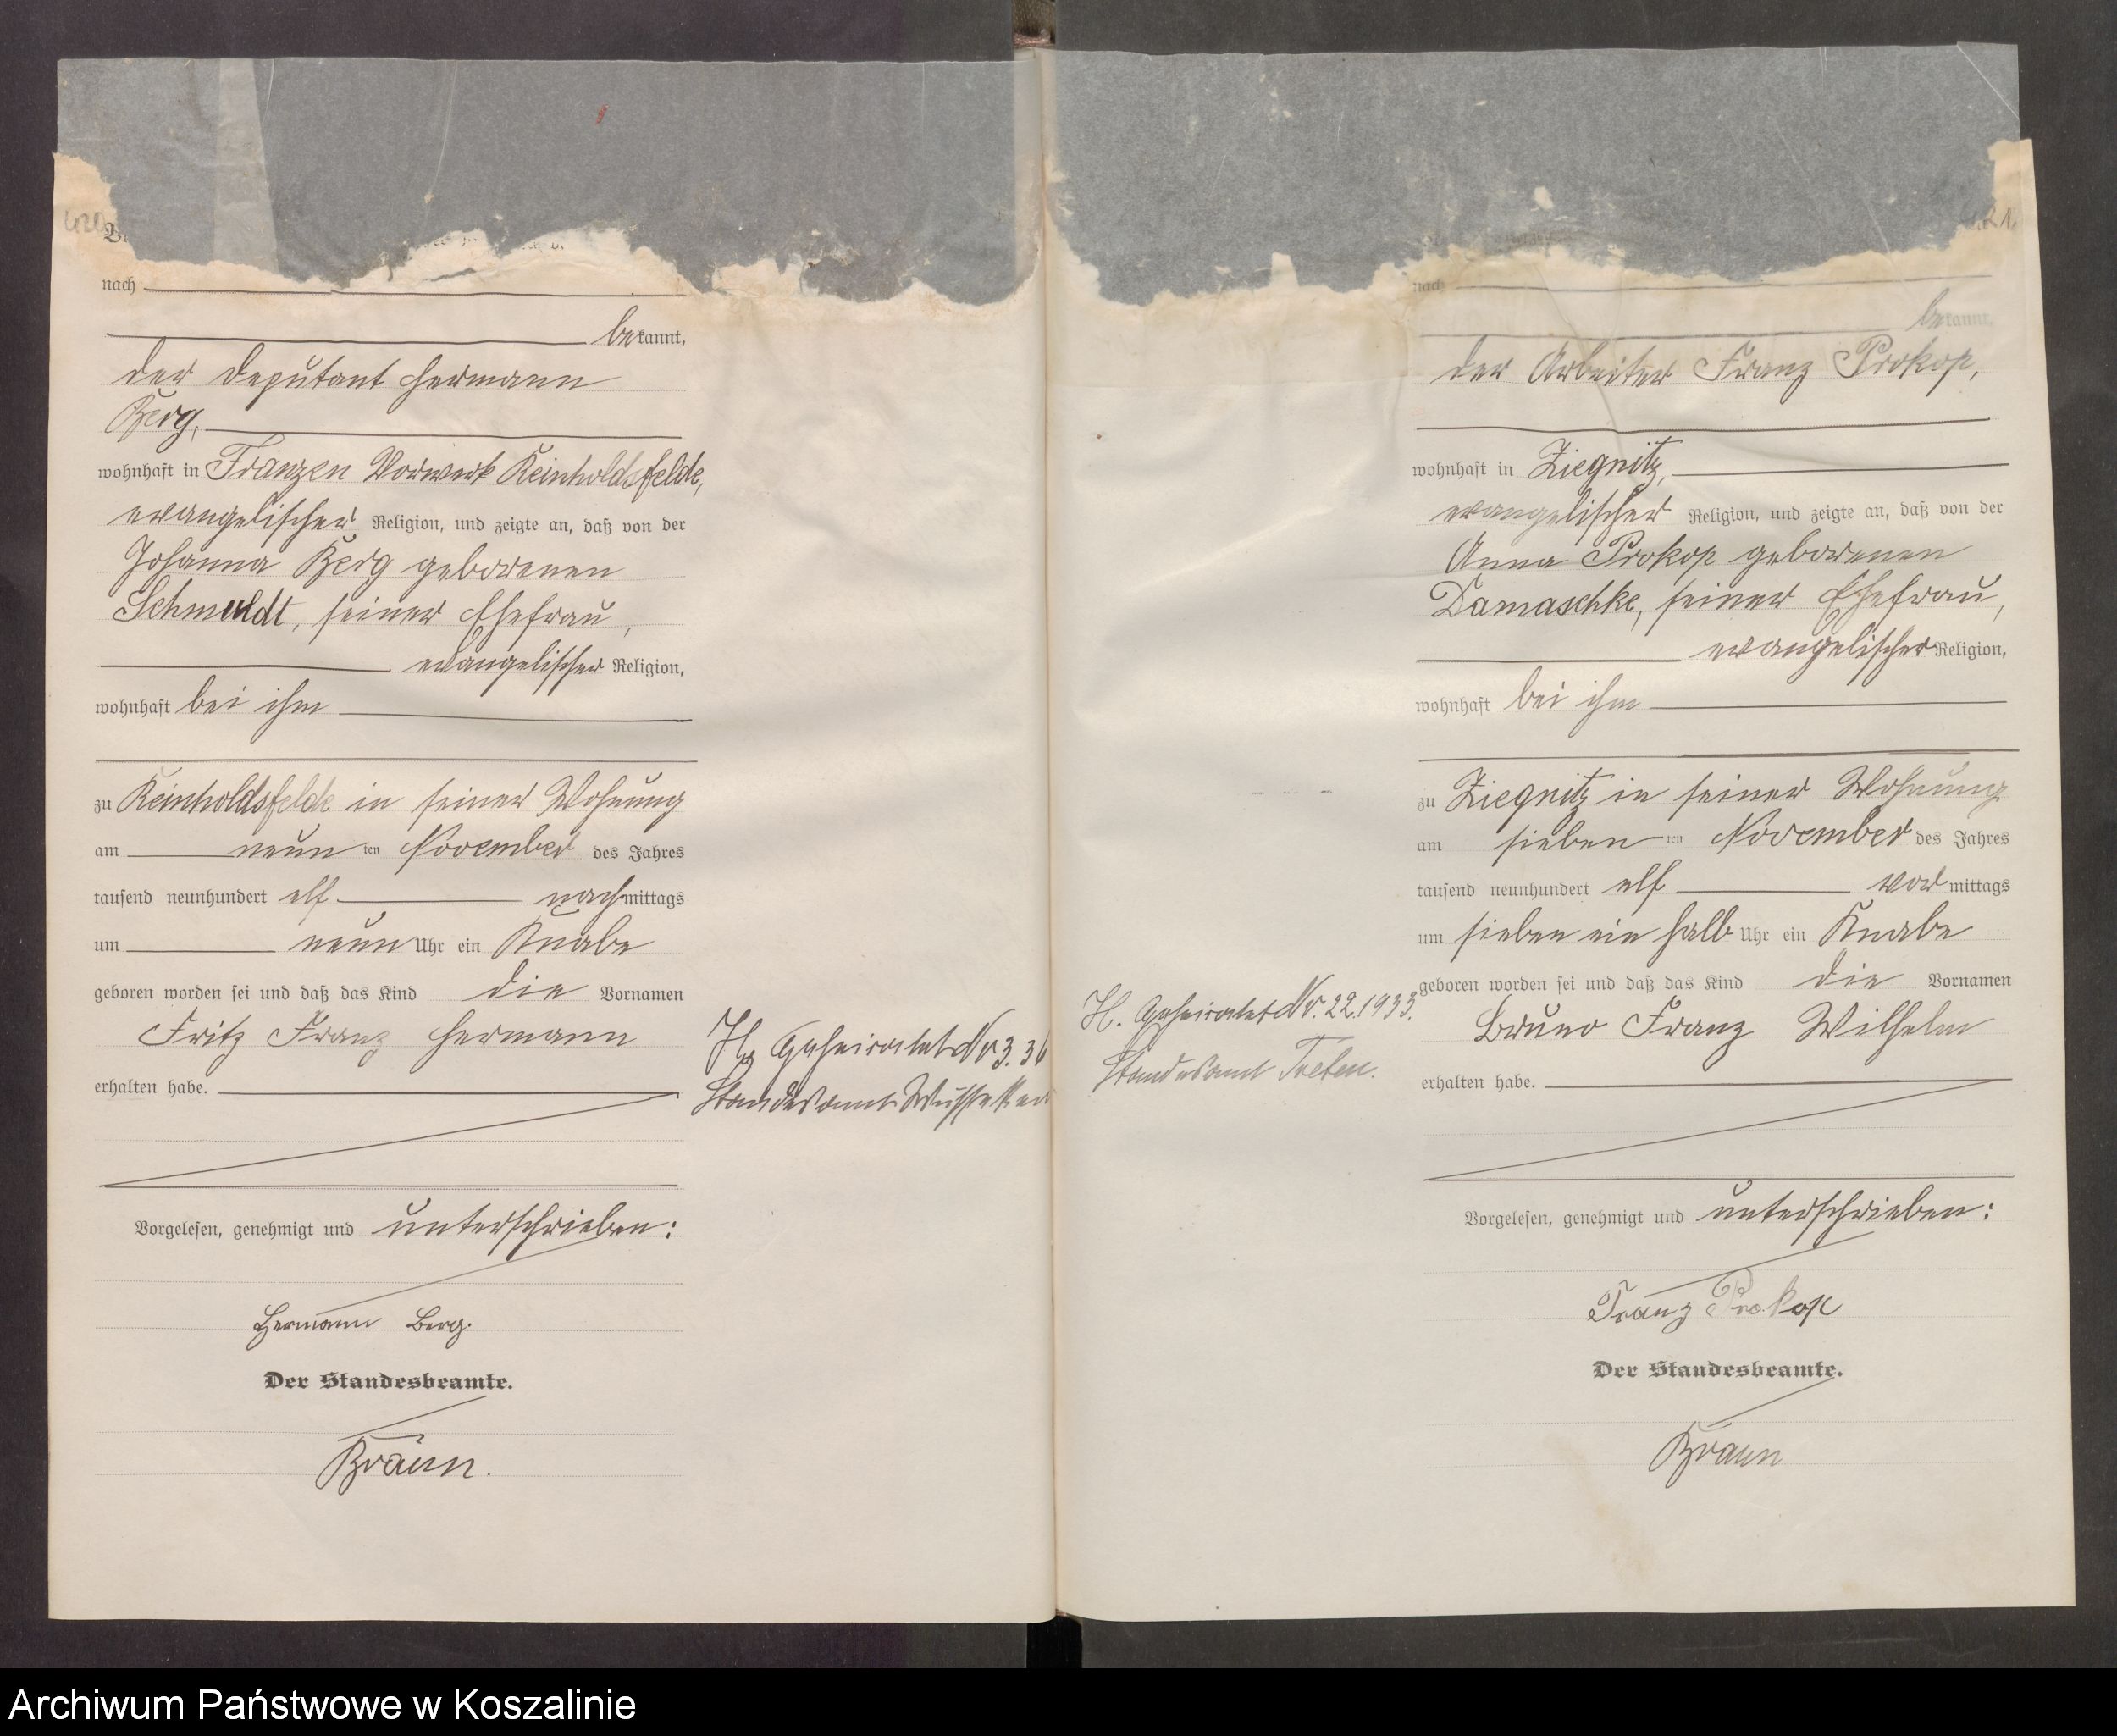 420
nach
bekannt,
der Deputant Hermann
Berg,
wohnhaft in Franzen Vorwerk Reinholdsfelde,
evangelischer Religion, und zeigte an, daß von der
Johanna Berg geborenen
Schmuldt, seiner Ehefrau,
evangelischer Religion,
wohnhaft bei ihm
zu Reinholdsfelde in seiner Wohnung
am neun ten November des Jahres
tausend neunhundert elf nachmittags
um neun Uhr ein Knabe
geboren worden sei und daß das Kind die Vornamen
Fritz Franz Hermann
erhalten habe.
Vorgelesen, genehmigt und unterschrieben:
Hermann Berg.
Der Standesbeamte.
Braun.
Geheiratet Nr 3. 36
Standesamt
nach
bekannt,
der Arbeiter Franz Prokop,
wohnhaft in Ziegnitz,
evangelischer Religion, und zeigte an, daß von der
Anna Prokop geborenen
Damaschke, seiner Ehefrau,
evangelischer Religion,
wohnhaft bei ihm
zu Ziegnitz in seiner Wohnung
am sieben ten November des Jahres
tausend neunhundert elf vormittags
um sieben ein halb Uhr ein Knabe
geboren worden sei und daß das Kind die Vornamen
Bruno Franz Wilhelm
erhalten habe.
Vorgelesen, genehmigt und unterschrieben:
Franz Prokop
Der Standesbeamte.
Braun
H. Geheiratet Nr. 22.1933.
Standesamt Treten.
Archiwum Państwowe w Koszalinie